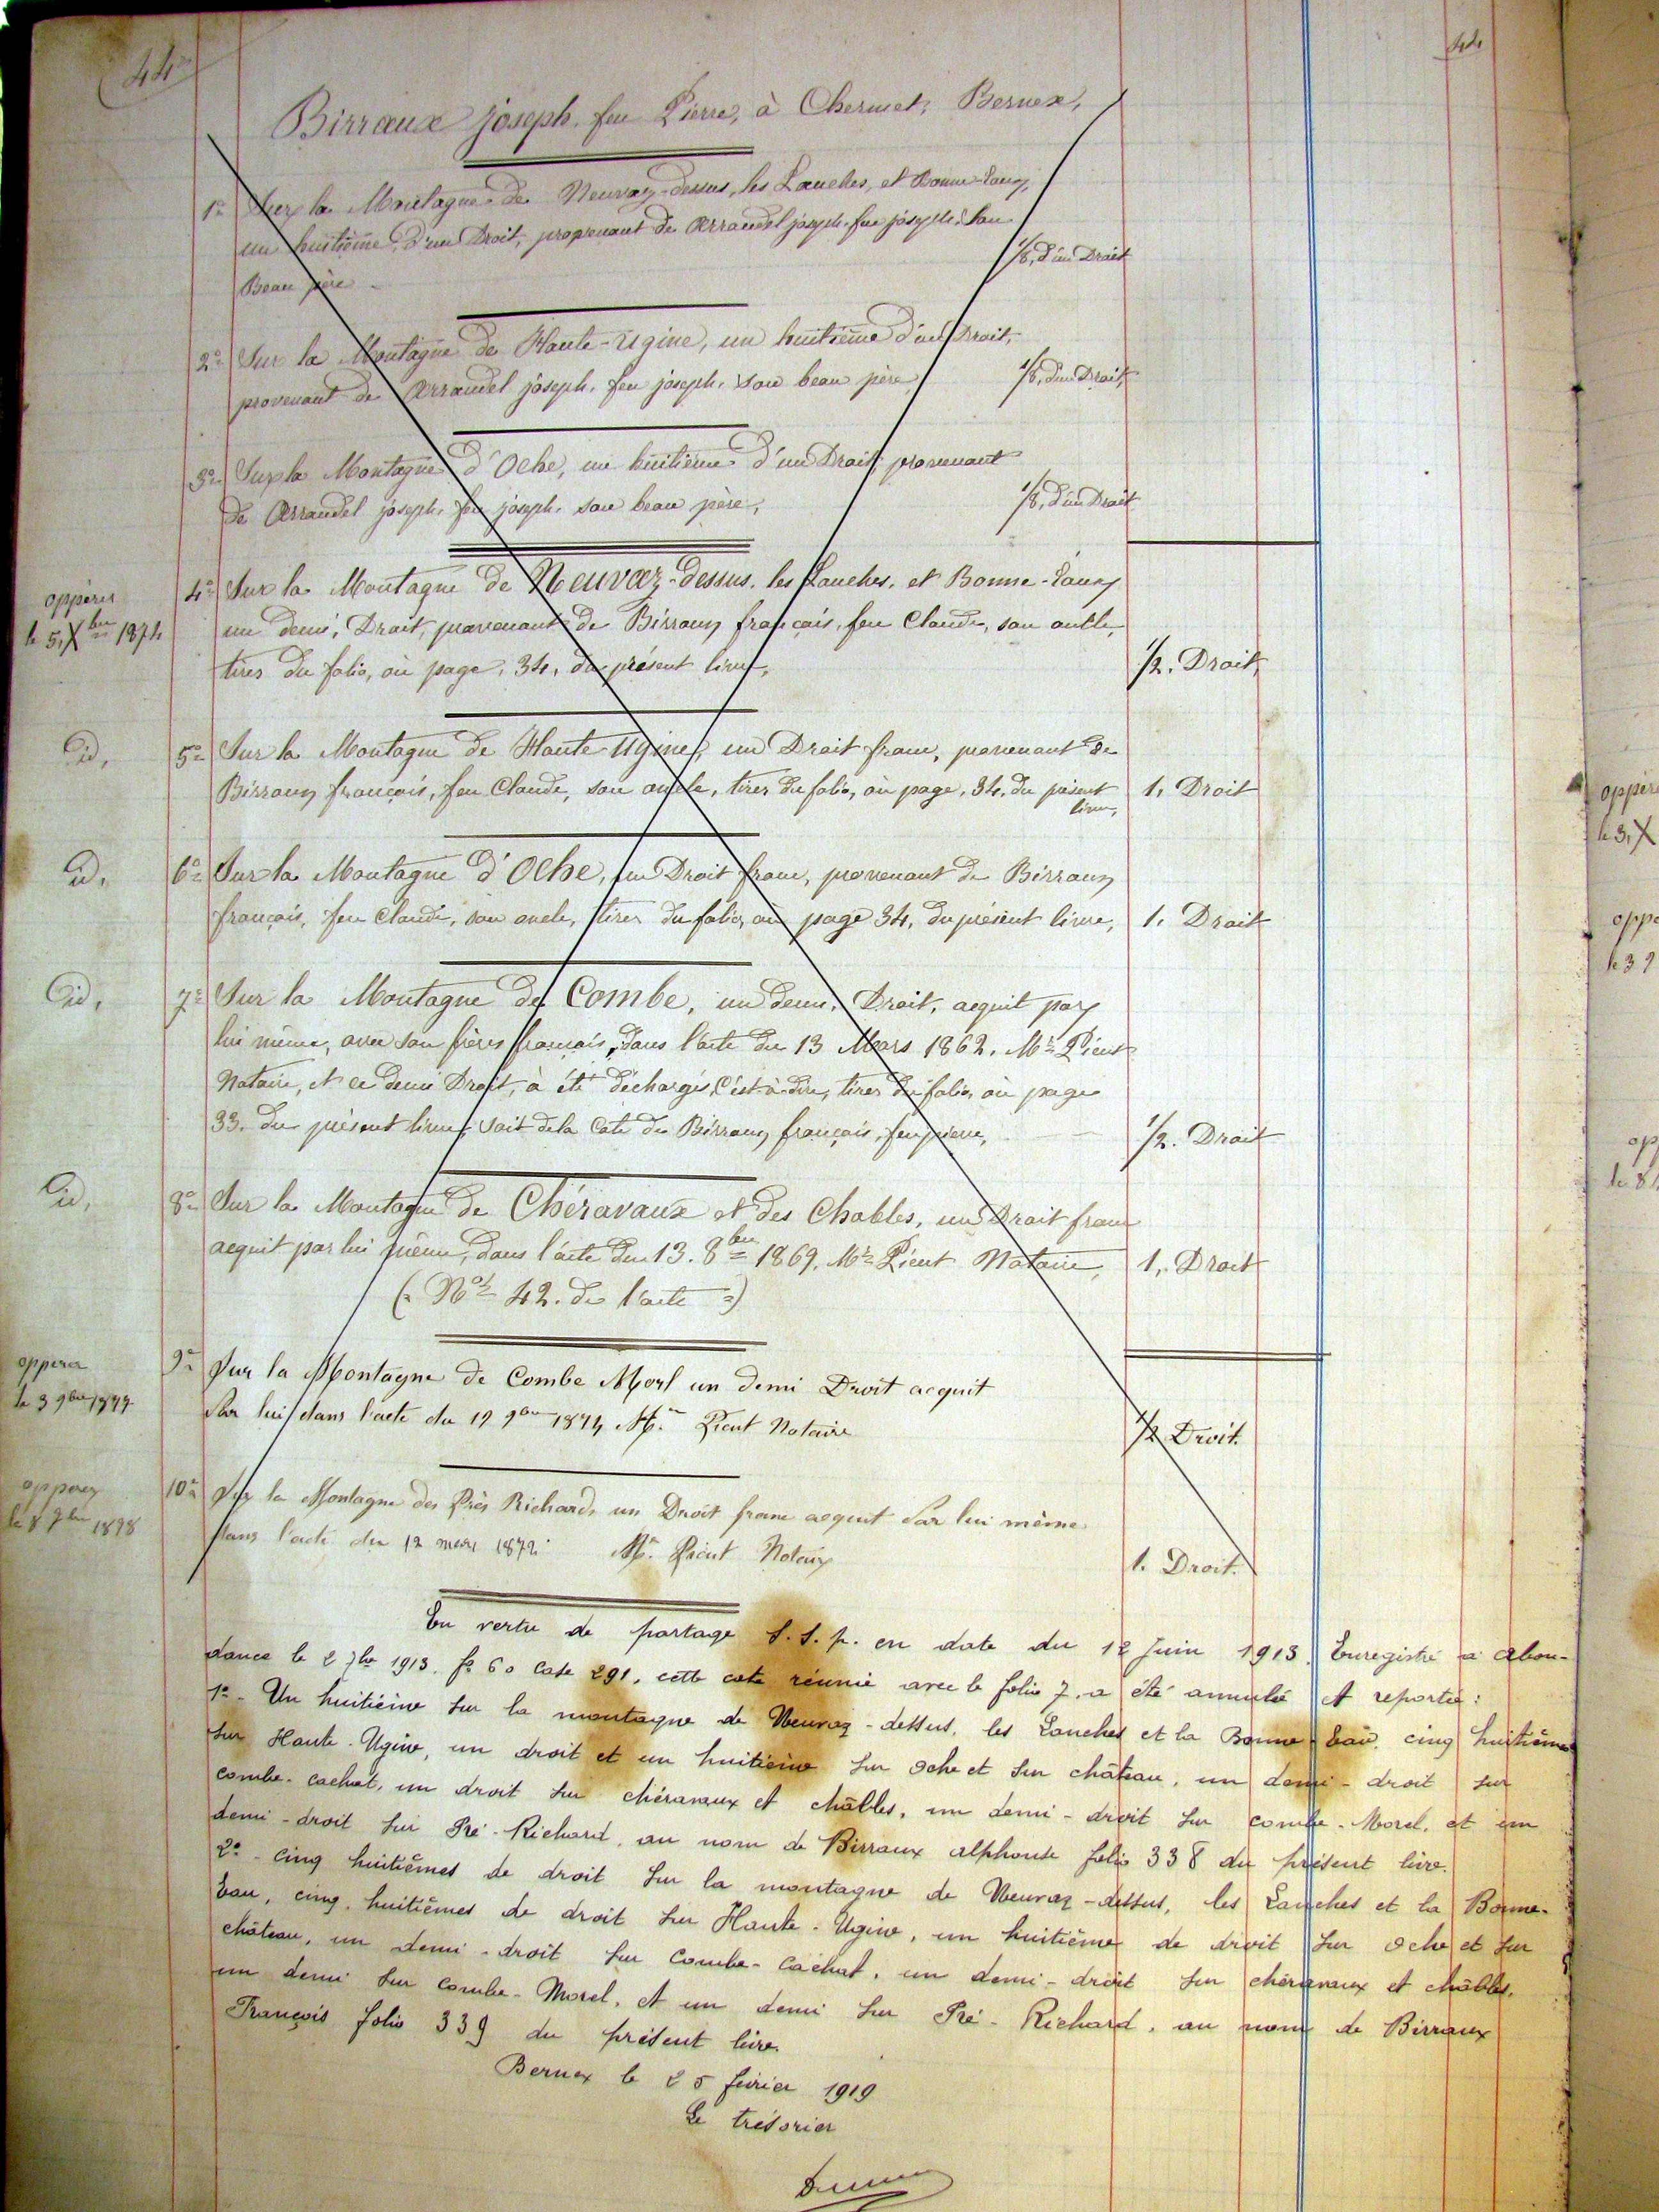 44
44
Birraux joseph, feu Pierre, à Chermet, Bernex,
1° Sur la Montagne de Neuvaz-dessus, les Lanches, et Bonne-Eaux,
un huitième, d'un Droit, provenant de Arrandel joseph, feu joseph, son
Beau père - 1/8, d'un Droit
2° Sur la Montagne de Haute-Ugine, un huitième d'un Droit,
provenant de Arrandel joseph, feu joseph, son beau père, 1/8, d'un Droit,
3° Sur la Montagne d'Oche, un huitième d'un Droit, provenant
de Arrandel joseph, feu joseph, son beau père, 1/8, d'un Droit
opperer 4° Sur la Montagne de Neuvaz-dessus, les Lanches, et Bonne-Eaux,
le 5, Xbre 1874 un demi, Droit, provenant de Birraux français, feu Claude, son oncle,
tirer du folio, où page, 34, du présent livre, 1/2. Droit,
id, 5° Sur la Montagne de Haute-Ugine, un Droit franc, provenant de
Birraux français, feu Claude, son oncle, tirer du folio, où page, 34, du présent 1, Droit
livre,
id, 6° Sur la Montagne d'Oche, un Droit franc, provenant de Birraux
français, feu Claude, son oncle, tirer du folio, où page 34, du présent livre, 1, Droit
id, 7° Sur la Montagne de Combe, un demi, Droit, acquit par
lui même, avec son frères français, dans l'acte du 13 Mars 1862, Me Pient
Notaire, et ce demi Droit, à été déchargés, C'est-à-dire, tirer du folio, où page
33, du présent livre, soit de la Cote de Birraux français, feu pierre, 1/2. Droit
id, 8° Sur la Montagne de Chéravaux et des Chables, un Droit franc
acquit par lui même, dans l'acte du 13. 8bre 1869, Me Pient Notaire, 1, Droit
(= No 42. de l'acte =)
opperer 9° Sur la Montagne de Combe Morl un demi Droit acquit
le 3 9bre Par lui dans l'acte du 12 9bre 1874 Me Pient Notaire 1/2 Droit.
opperer 10° Sur la Montagne des Près Richards un Droit franc acquit Par lui même
le 8 7bre 1898 dans l'acte du 12 mars 1872 Me Pient Notaire 1. Droit.
En vertu de partage S.S.p. en date du 12 Juin 1913. Enregistré à Abon-
dance le 2 7bre 1913. fo 60 Case 291, cette cote réunie avec le folio 7, a été annulée et reportée :
1° - Un huitième sur la montagne de Neuvaz-dessus, les Lanches et la Bonne Eau, cinq huitièmes
sur Haute-Ugine, un droit et un huitième sur oche et sur château, un demi-droit sur
combe-cachat, un droit sur chéravaux et châbles, un demi-droit sur combe-Morel, et un
demi-droit sur Pré-Richard, au nom de Birraux alphonse folio 338 du présent livre.
2° - Cinq huitièmes de droit sur la montagne de Neuvaz-dessus, les Lanches et la Bonne-
Eau, cinq huitièmes de droit sur Haute-Ugine, un huitième de droit sur oche et sur
château, un demi-droit sur Combe-Cachat, un demi-droit sur chéravaux et châbles,
un demi sur combe-Morel, et un demi sur Pré-Richard, au nom de Birraux
François folio 339 du présent livre.
Bernex le 25 février 1919
Le trésorier
opper
le 3, X
oppe
le 3 9
op
le 8